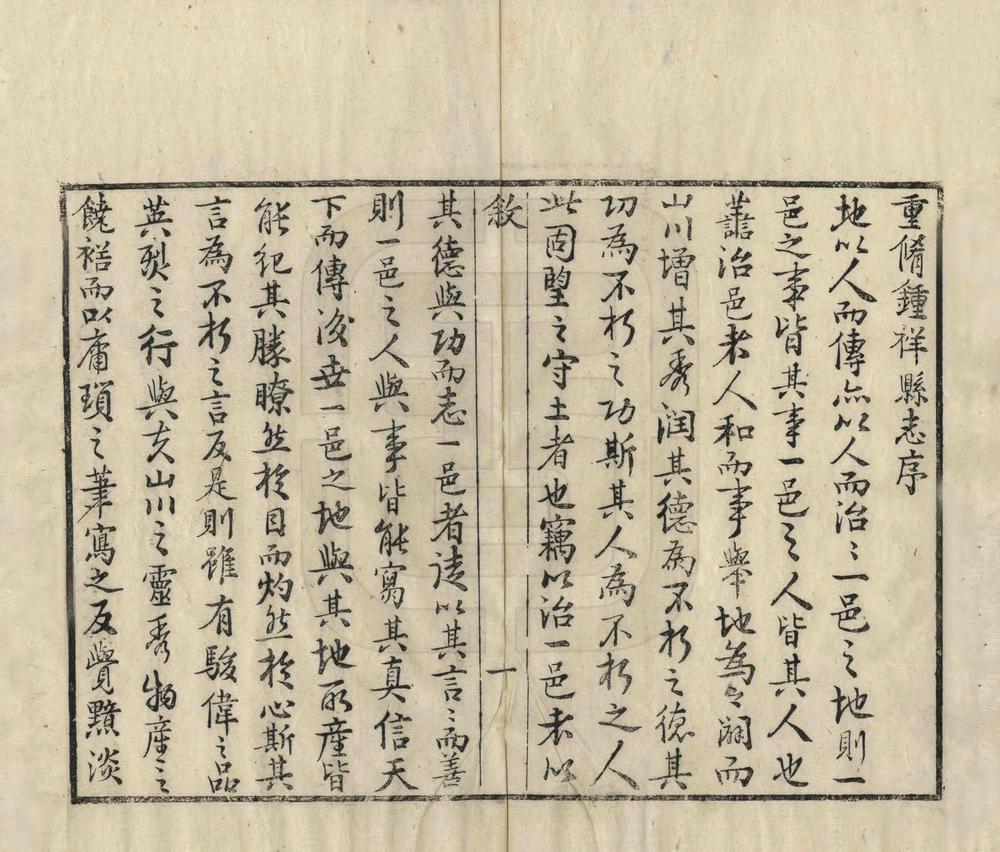 重脩鍾祥縣志序
地以人而傳亦以人而治〻一邑之地則一
邑之事皆其事一邑之人皆其人也
蓋治邑者人和而事舉地為之闢而
山川增其秀潤其德為不朽之德其
功為不朽之功斯其人為不朽之人
此固塱之守土者也竊以治一邑者以
敘
一
其德與功而志一邑者徒以其言〻而善
則一邑之人與事皆能寫其真信天
下而傳後世一邑之地與其地所產皆
能紀其勝瞭然於目而灼然於心斯其
言為不朽之言反是則雖有駿偉之品
英烈之行與夫山川之靈秀物產之
饒裕而以庸瑣之筆寫之反覺黯淡